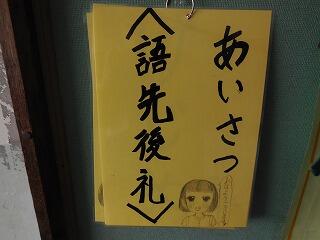 あいさつ
〈語先後礼〉